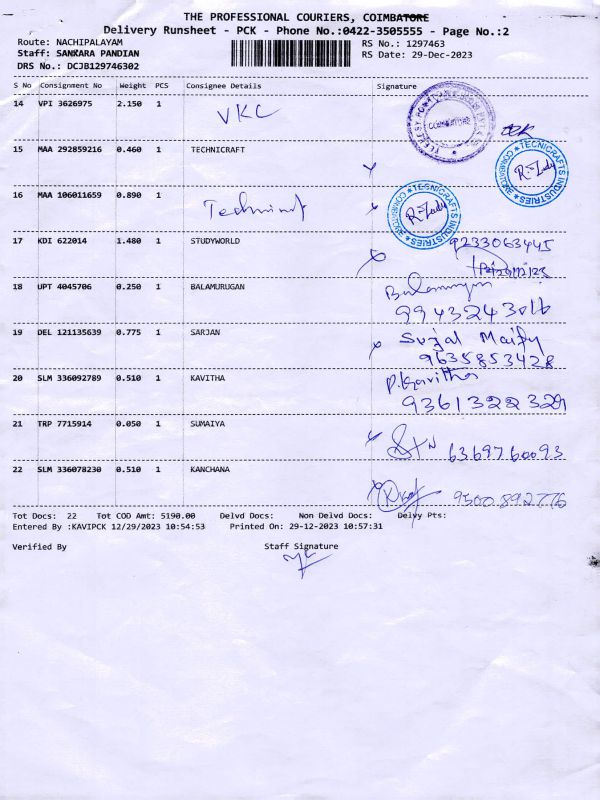 THE PROFESSIONAL COURIERS, COIMBATORE
Delivery Runsheet - PCK - Phone No.:0422-3505555 - Page No.:2
Route: NACHIPALAYAM RS No.: 1297463
Staff: SANKARA PANDIAN RS Date: 29-Dec-2023
DRS No.: DCJB129746302
S No Consignment No Weight PCS Consignee Details Signature
14 VPI 3626975 2.150 1 VKC
15 MAA 292859216 0.460 1 TECHNICRAFT
TECNICRAFTS INDUSTRIES COIMBATORE
16 MAA 106011659 0.890 1
TECNICRAFTS INDUSTRIES COIMBATORE
17 KDI 622014 1.480 1 STUDYWORLD 9233063445
18 UPT 4045706 0.250 1 BALAMURUGAN Balamurugan
9943243016
19 DEL 121135639 0.775 1 SARJAN Sujal Maity
9635853428
20 SLM 336092789 0.510 1 KAVITHA P.Kavitha
9361322329
21 TRP 7715914 0.050 1 SUMAIYA 6369760093
22 SLM 336078230 0.510 1 KANCHANA 9500892776
Tot Docs: 22 Tot COD Amt: 5190.00 Delvd Docs: Non Delvd Docs: Delvy Pts:
Entered By :KAVIPCK 12/29/2023 10:54:53 Printed On: 29-12-2023 10:57:31
Verified By Staff Signature